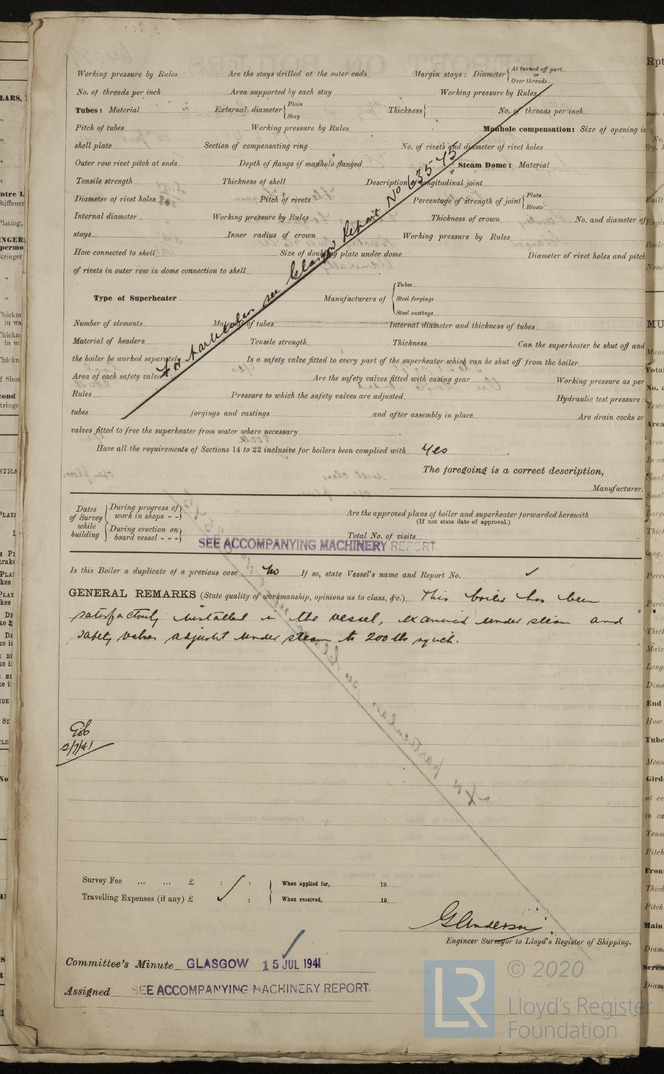 Working pressure by Rules Are the stays drilled at the outer ends Margin stays: Diameter { At turned off part. or Over threads
No. of threads per inch Area supported by each stay Working pressure by Rules
Tubes: Material External diameter { Plain Stay Thickness { No. of threads per inch
Pitch of tubes Working pressure by Rules Manhole compensation: Size of opening in
shell plate Section of compensating ring No. of rivets and diameter of rivet holes
Outer row rivet pitch at ends Depth of flange if manhole flanged Steam Dome: Material
Tensile strength Thickness of shell Description of longitudinal joint
Diameter of rivet holes Pitch of rivets Percentage of strength of joint { Plate Rivets
Internal diameter Working pressure by Rules Thickness of crown No. and diameter of
stays Inner radius of crown Working pressure by Rules
How connected to shell Size of doubling plate under dome Diameter of rivet holes and pitch
of rivets in outer row in dome connection to shell
For particulars see Glasgow Report No 63545
Type of Superheater Manufacturers of { Tubes Steel forgings Steel castings
Number of elements Material of tubes Internal diameter and thickness of tubes
Material of headers Tensile strength Thickness Can the superheater be shut off and
the boiler be worked separately Is a safety valve fitted to every part of the superheater which can be shut off from the boiler
Area of each safety valve Are the safety valves fitted with easing gear Working pressure as per
Rules Pressure to which the safety valves are adjusted Hydraulic test pressure:
tubes forgings and castings and after assembly in place Are drain cocks or
valves fitted to free the superheater from water where necessary
Have all the requirements of Sections 14 to 22 inclusive for boilers been complied with Yes
The foregoing is a correct description,
Manufacturer.
Dates of Survey while building { During progress of work in shops - - } { During erection on board vessel - - - }
Are the approved plans of boiler and superheater forwarded herewith
(If not state date of approval.)
Total No. of visits
SEE ACCOMPANYING MACHINERY REPORT
Is this Boiler a duplicate of a previous case No If so, state Vessel's name and Report No. ✓
GENERAL REMARKS (State quality of workmanship, opinions as to class, &c.) This boiler has been
satisfactorily installed in the vessel, examined under steam and
safety valves adjusted under steam to 200 lb sq inch.
2/7/41
Survey Fee ... ... £ : : When applied for, 19
Travelling Expenses (if any) £ : : When received, 19
G Anderson
Engineer Surveyor to Lloyd's Register of Shipping.
Committee's Minute GLASGOW 15 JUL 1941
Assigned SEE ACCOMPANYING MACHINERY REPORT.
LR © 2020
Lloyd's Register
Foundation